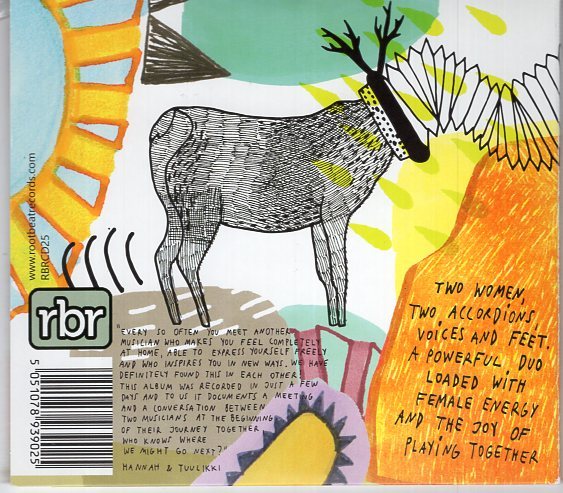 www.rootbeatrecords.com
RBRCD25
rbr
5 051078 939025
"EVERY SO OFTEN YOU MEET ANOTHER
MUSICIAN WHO MAKES YOU FEEL COMPLETELY
AT HOME, ABLE TO EXPRESS YOURSELF FREELY
AND WHO INSPIRES YOU IN NEW WAYS. WE HAVE
DEFINITELY FOUND THIS IN EACH OTHER.
THIS ALBUM WAS RECORDED IN JUST A FEW
DAYS AND TO US IT DOCUMENTS A MEETING
AND A CONVERSATION BETWEEN
TWO MUSICIANS AT THE BEGINNING
OF THEIR JOURNEY TOGETHER
WHO KNOWS WHERE
WE MIGHT GO NEXT?"
HANNAH & TUULIKKI
TWO WOMEN,
TWO ACCORDIONS,
VOICES AND FEET.
A POWERFUL DUO
LOADED WITH
FEMALE ENERGY
AND THE JOY OF
PLAYING TOGETHER